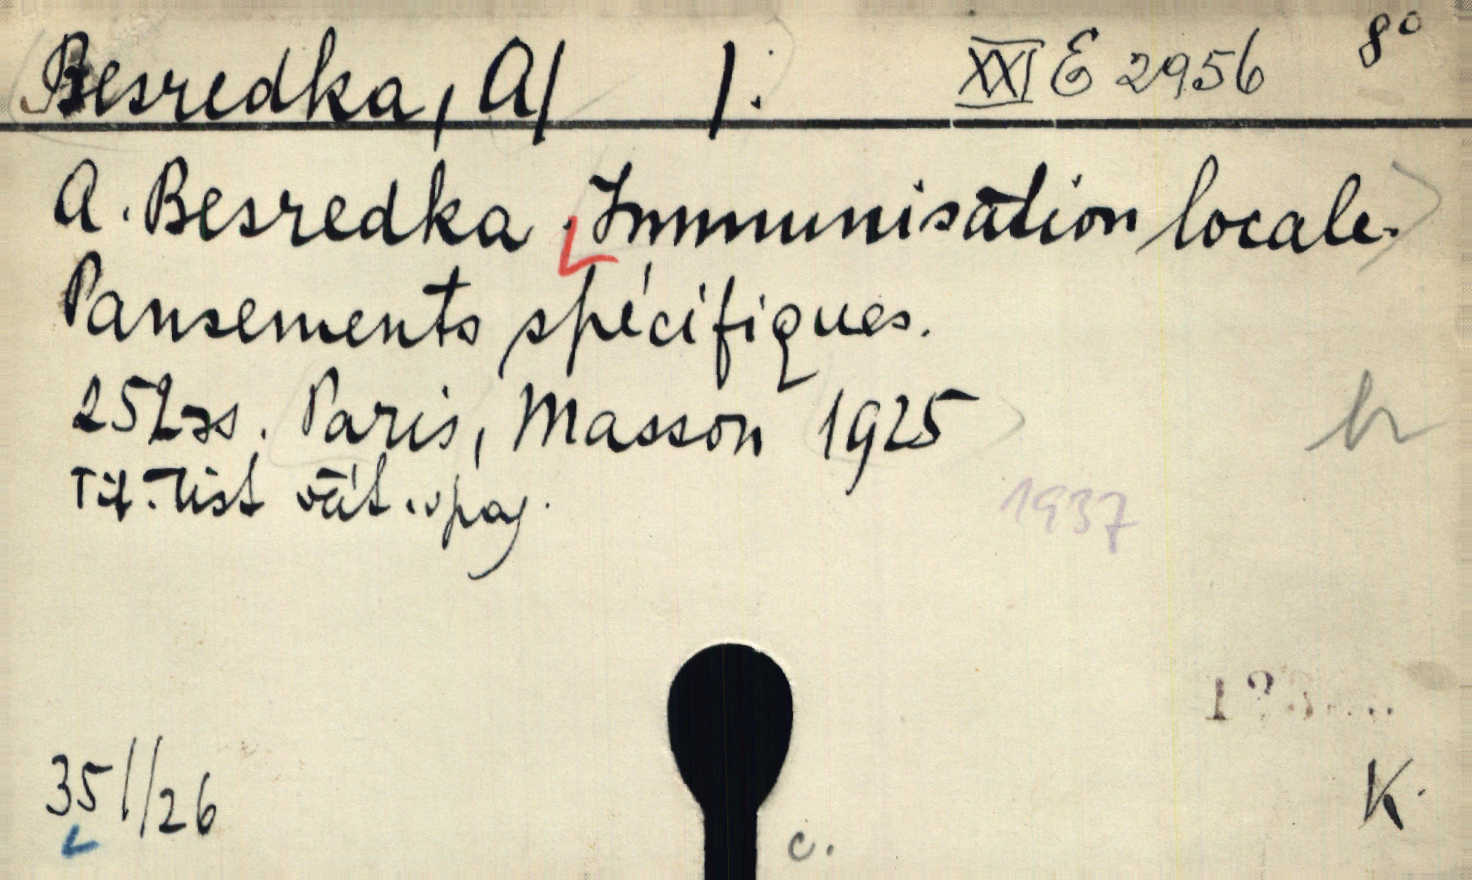 Besredka, A/ /. XXI E 2956 8°
A. Besredka. Immunisation locale.
Pansements spécifiques.
252 s. Paris, Masson 1925
Tit. list vät. v pag.
1937
35 1/26
K.
c.